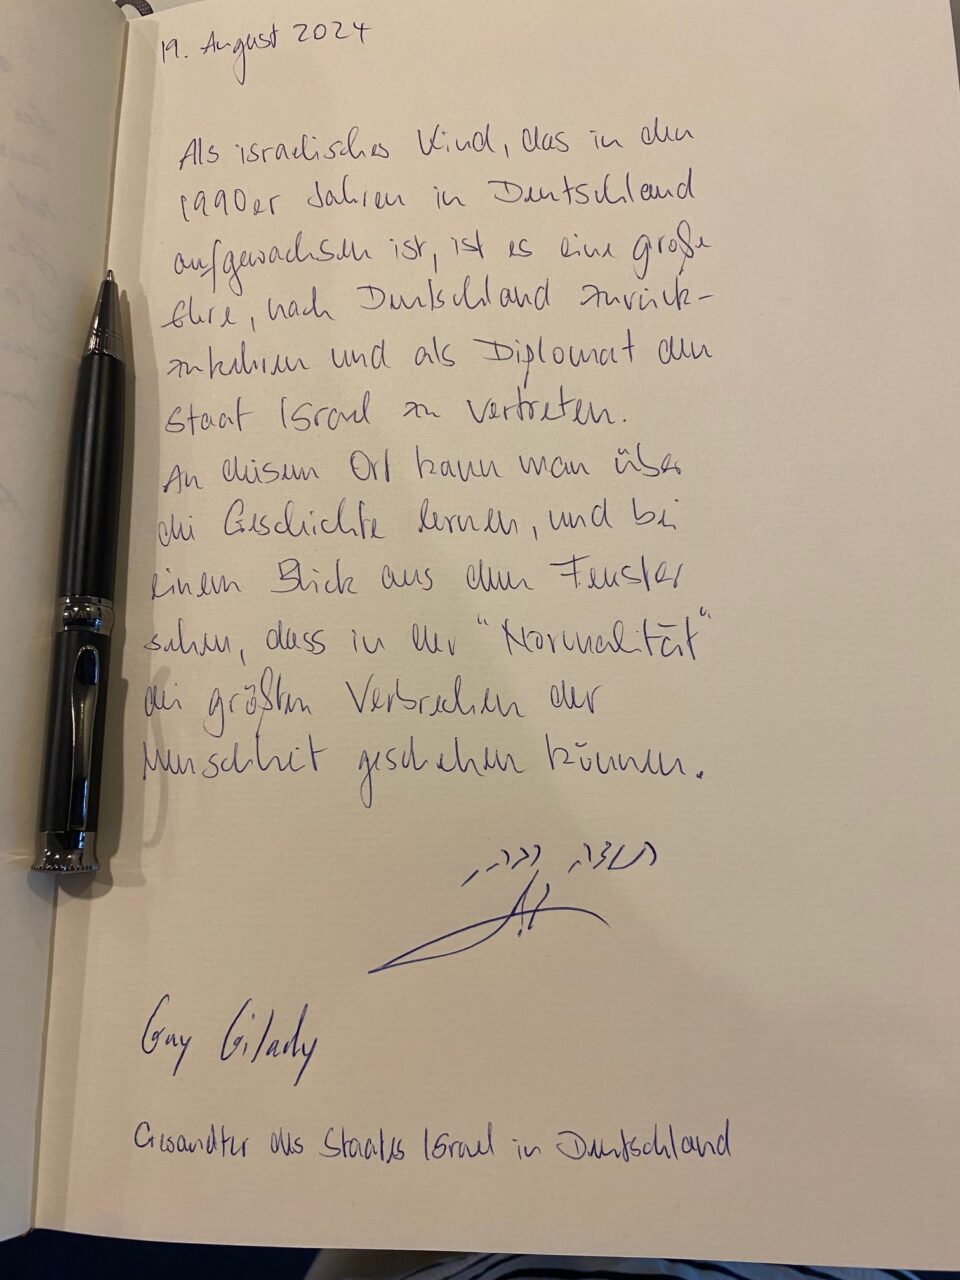 19. August 2024
Als israelisches Kind, das in den
1990er Jahren in Deutschland
aufgewachsen ist, ist es eine große
Ehre, nach Deutschland zurück-
zukehren und als Diplomat den
Staat Israel zu vertreten.
An diesem Ort kann man über
die Geschichte lernen, und bei
einem Blick aus dem Fenster
sehen, dass in der "Normalität"
die größten Verbrechen der
Menschheit geschehen können.
תודה רבה,
Guy Gilady
Gesandter des Staates Israel in Deutschland